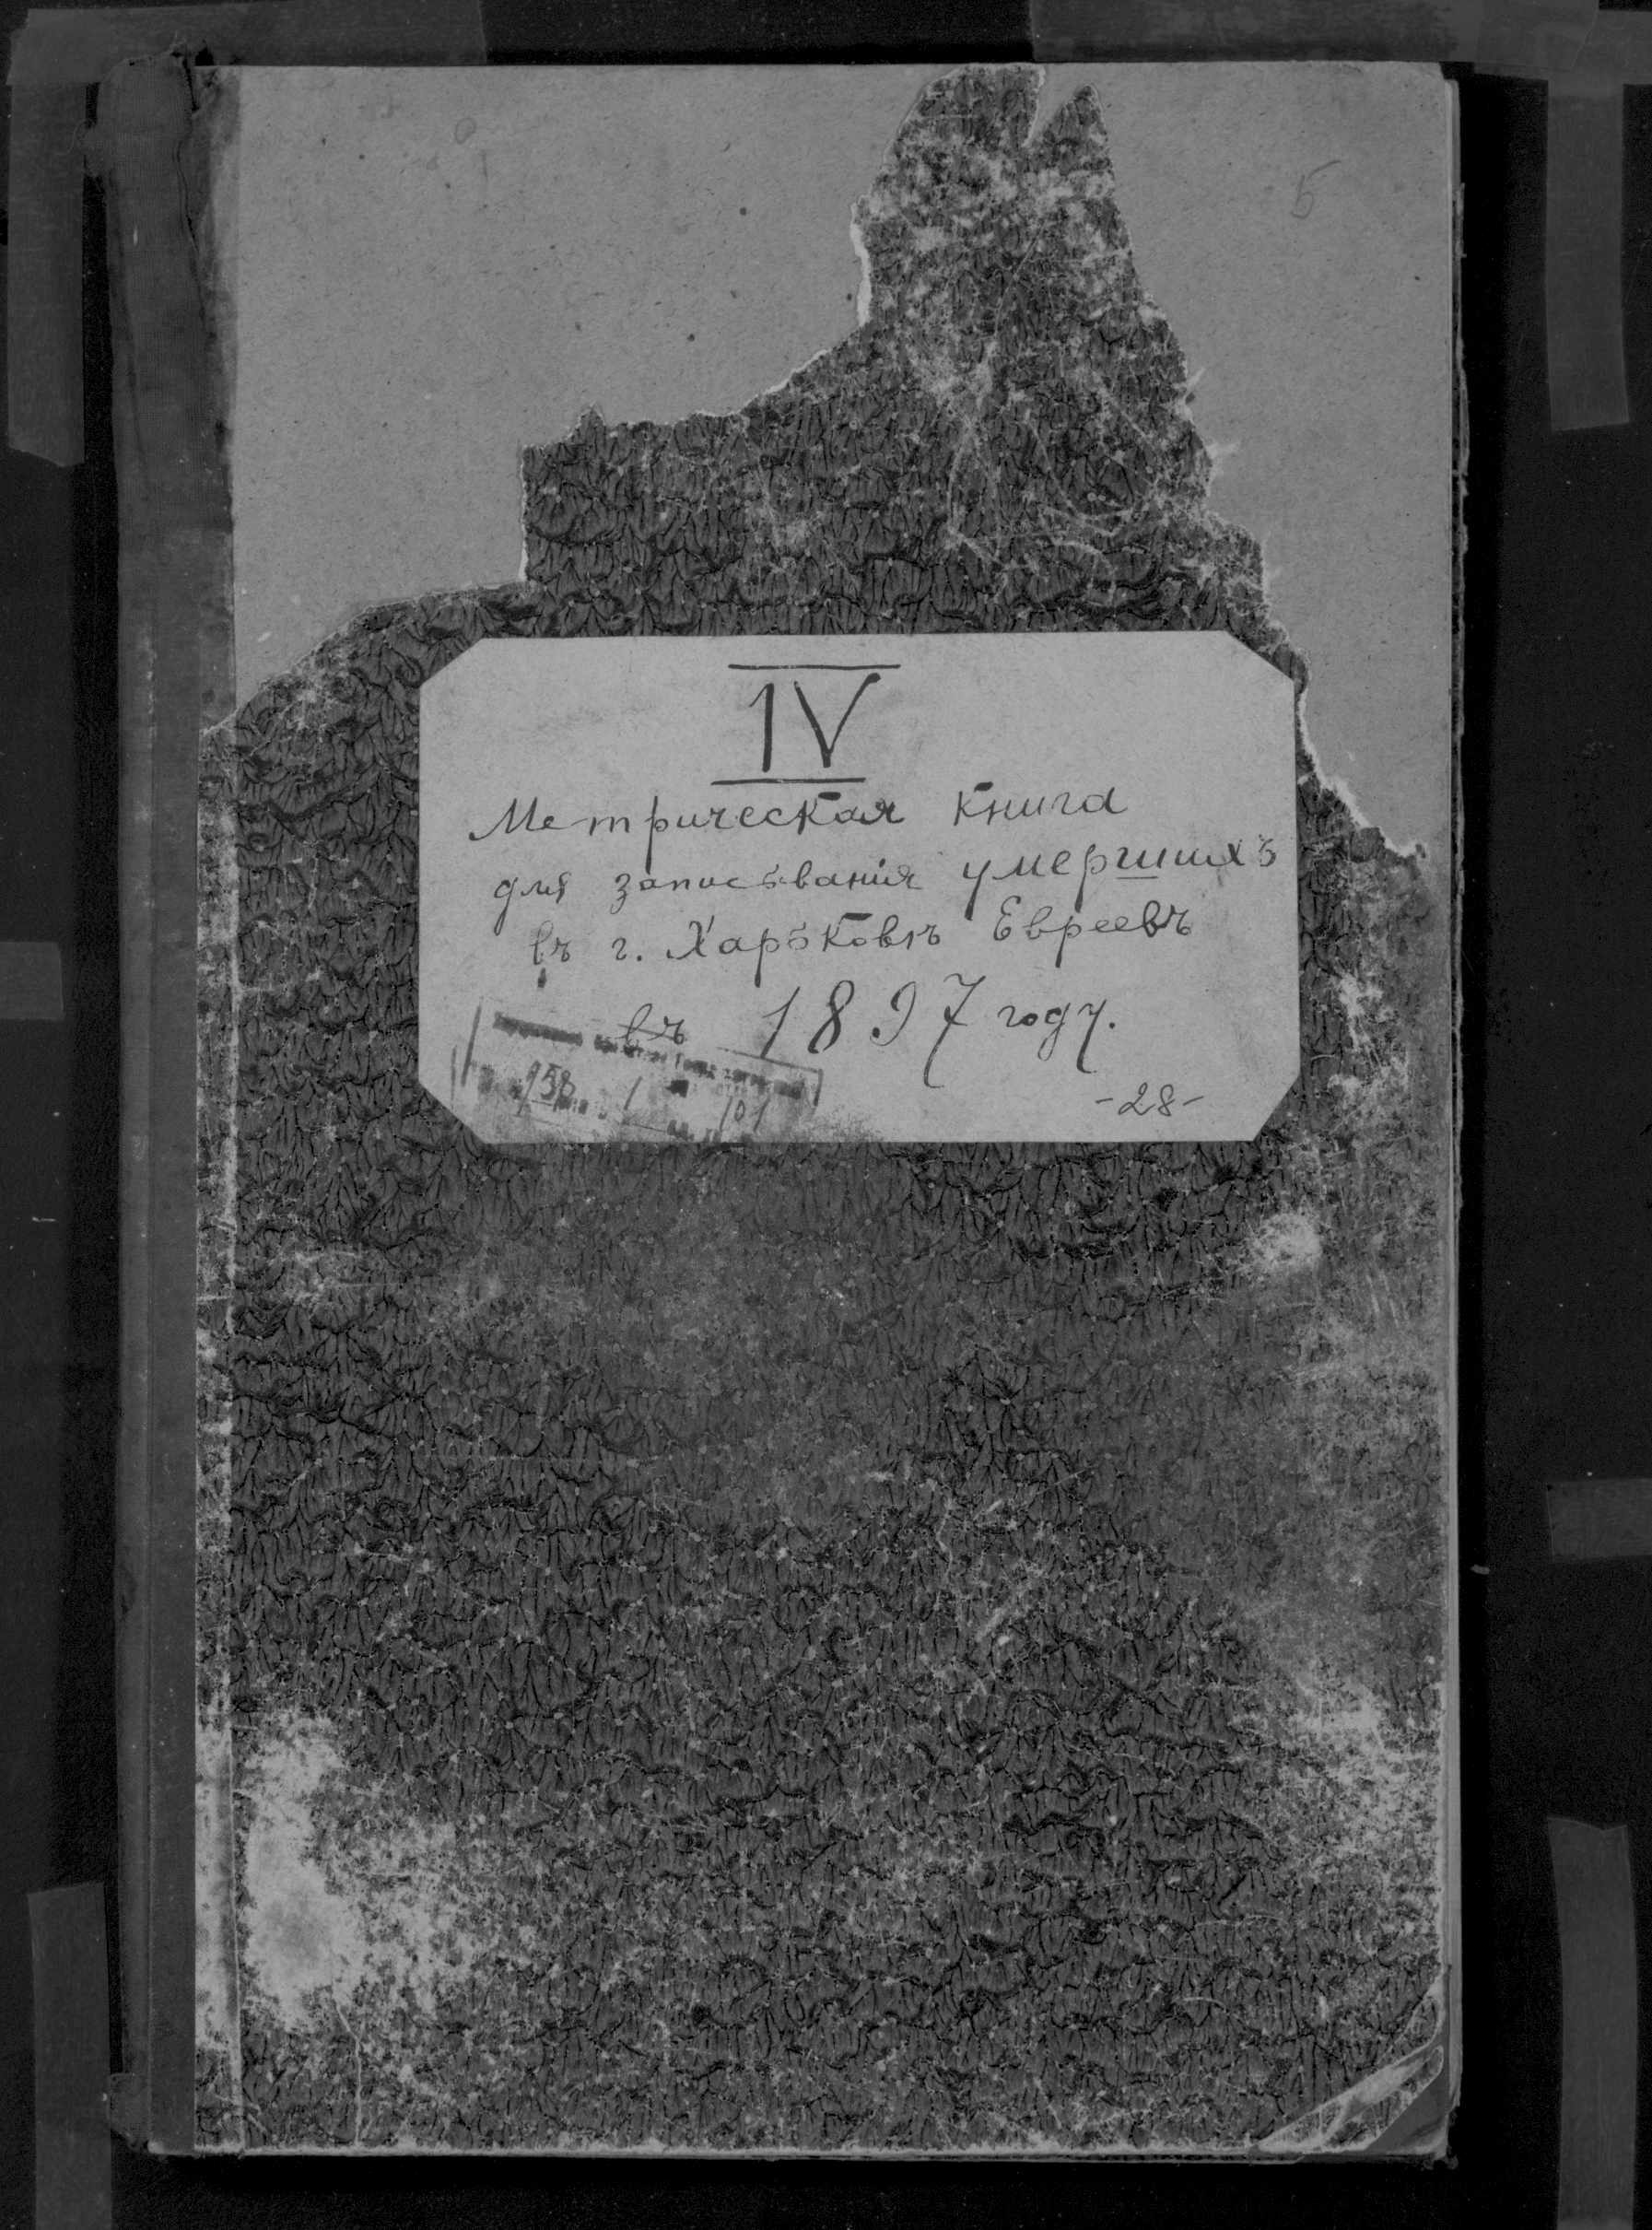 5
IV
Метрическая книга
для записыванія умершихъ
въ г. Харьковѣ Евреевъ
въ 1897 году.
958 1 101
-28-